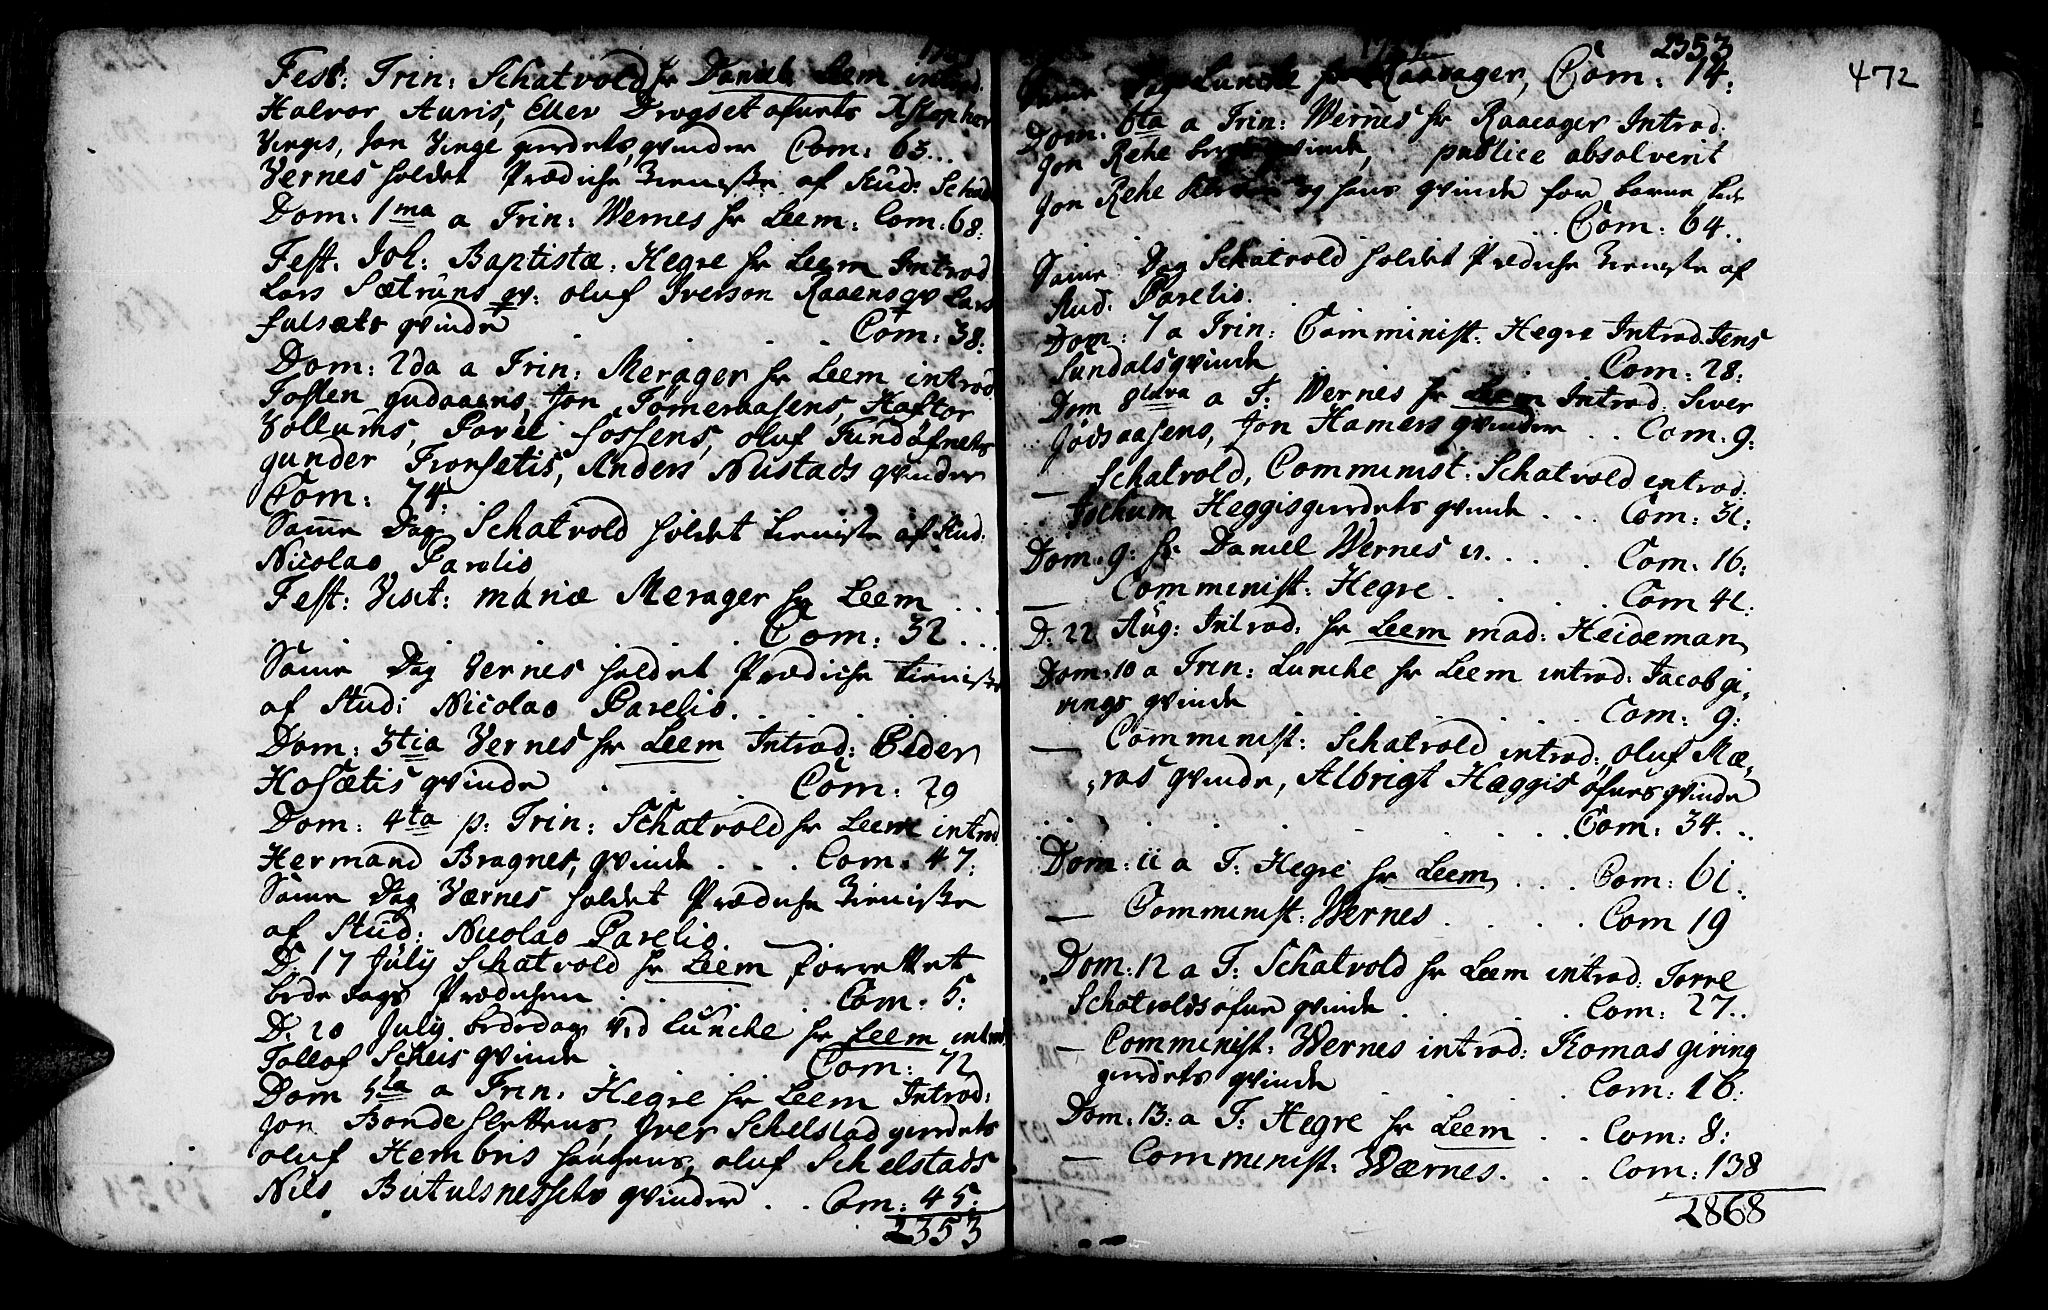 Fest: Trin: Schatvold hr Daniel Leem introd.
Halvor Auris, Eller Drogset øfurets
Vinges, Jon Vinge gurdets, qvinder Com: 63...
Vernes holdet Prædiche Tieniste af Stud: Schad
Dom: 1ma a Trin: Wernes hr Leem: Com: 68:
Fest. Joh: Baptistæ: Hegre hr Leem Introd
Lars Sætruns qv: oluf Iverson Raaens qv Lars
fulsæts qvinde . . . Com: 38:
Dom: 2da a Trin: Merager hr Leem introd
Tosten gudaaens, Jon Tømeraasens, Haftor
Vollums, Povel fossens, oluf Fundøfnets
gunder Fronsetis, Anders Nustads qvinder
Com: 74:
Samme Dag Schatvold holdet tieniste af Stud.
Nicolao Parelio
Fest: Visit: mariæ Merager hr Leem . . .
. . . Com: 32 ...
Same Dag Vernes holdet Prædiche tieniste
af Stud: Nicolao Parelio. . . . .
Dom: 3tia Vernes hr Leem Introd: Peder
Hosætis qvinde . . . Com: 29
Dom: 4ta p: Trin: Schatvold hr Leem introd
Hermand Bragnes, qvinde . . . Com. 47:
Same Dag Værnes holdet Prædiche Tieniste
af Stud: Nicolao Parelio.
D. 17 July Schatvold hr Leem forrettet
bede dags Prædichen . . . Com. 5:
D: 20 July bededag ved Lunche hr Leem introd
Tollof Scheis qvinde . . Com: 72
Dom 5ta a Trin. Hegre hr Leem Introd:
Jon Bondeslettens, Iver Schelstad gurdets
oluf Hembris haugens, oluf Schelstads
Nils Butulsnesselv qvinder . . Com: 45:
2353
2353
472
Same Dag Lunche hr Raaeager, Com: 14:
Dom: 6ta a Trin: Wernes hr Raaeager Introd:
Jon Rehe qvinde, publice absolverit
Jon Rehe og hans qvinde for barne
.. Com: 64..
Same Dag Schatvold holdet Prædiche Tieneste af
Stud. Parelio.
Dom: 7 a Trin: Comminist: Hegre Introd. Jens
Sundals qvinde . . . Com: 28:
Dom 8tava a T: Vernes hr Leem Introd: Siver
Jødsaasens, Jon Hamers qvinder . . Com. 9:
— Schatvold, Comminist: Schatvold introd:
Jochum Heggisgurdets qvinde . . . Com: 31:
Dom. 9: hr Daniel Wernes . . . . Com: 16:
— Comminist: Hegre . . . . Com 41:
D: 22 Aug: Introd: hr Leem mad: Heideman
Dom: 10 a Trin: Lunche hr Leem introd: Jacob gi,
rings qvinde . . . Com: 9:
— Comminist: Schatvold introd: oluf Mæ,
,ras qvinde, Albrigt Hæggis øfurs qvinde
. . . . . . . . Com: 34...
Dom: 11 a T: Hegre hr Leem . . . Com: 61.
— Comminist: Wernes . . . . Com 19
Dom: 12 a T: Schatvold hr Leem introd: Torre
Schatvolds øfure qvinde . . . . Com: 27..
— Comminist: Wernes introd: Tomas giring
gurdets qvinde . . . Com: 16:
Dom: 13: a T: Hegre hr Leem . . Com: 8:
— Comminist: Wærnes . . . Com: 138
2868